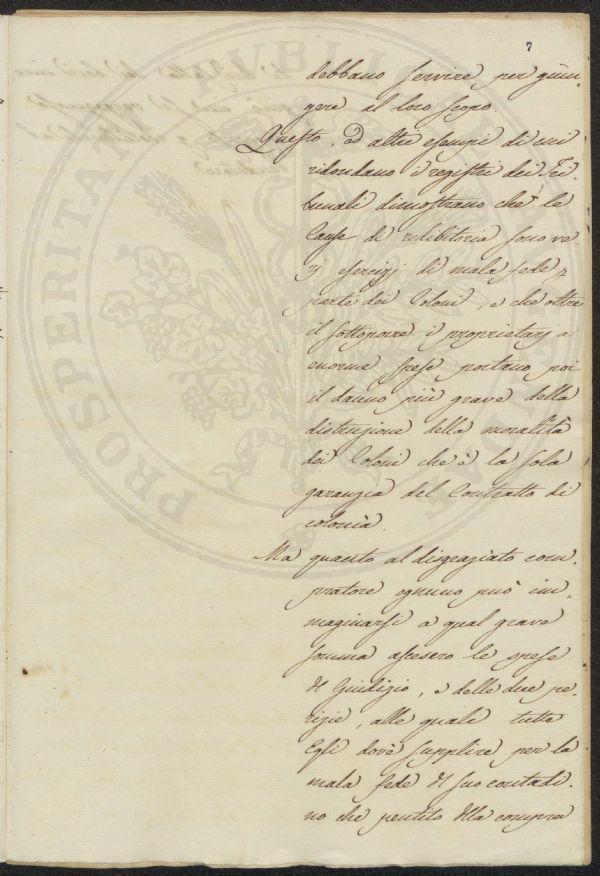 7
debbano servire per giun-
gere al loro scopo.
Questo, ed altri esempi di cui
ridondano i registri dei Tri-
bunali dimostrano che le
Cause di redibitoria sono ve-
rj esercizj di mala fede p
parte dei Coloni, e che oltre
il sottoporre i proprietarj a
enorme spese portano poi
il danno più grave della
distruzione della moralità
dei Coloni che è la sola
garanzia del Contratto di
colonìa.
Ma quanto al disgraziato com-
pratore ognuno può im-
maginarsi a qual grave
somma ascesero le spese
di Giudizio, e delle due pe-
rizie, alle quali tutte
Egli dovè supplire per la
mala fede di suo contadi-
no che pentito della compra
PROSPERITATI PVBLI